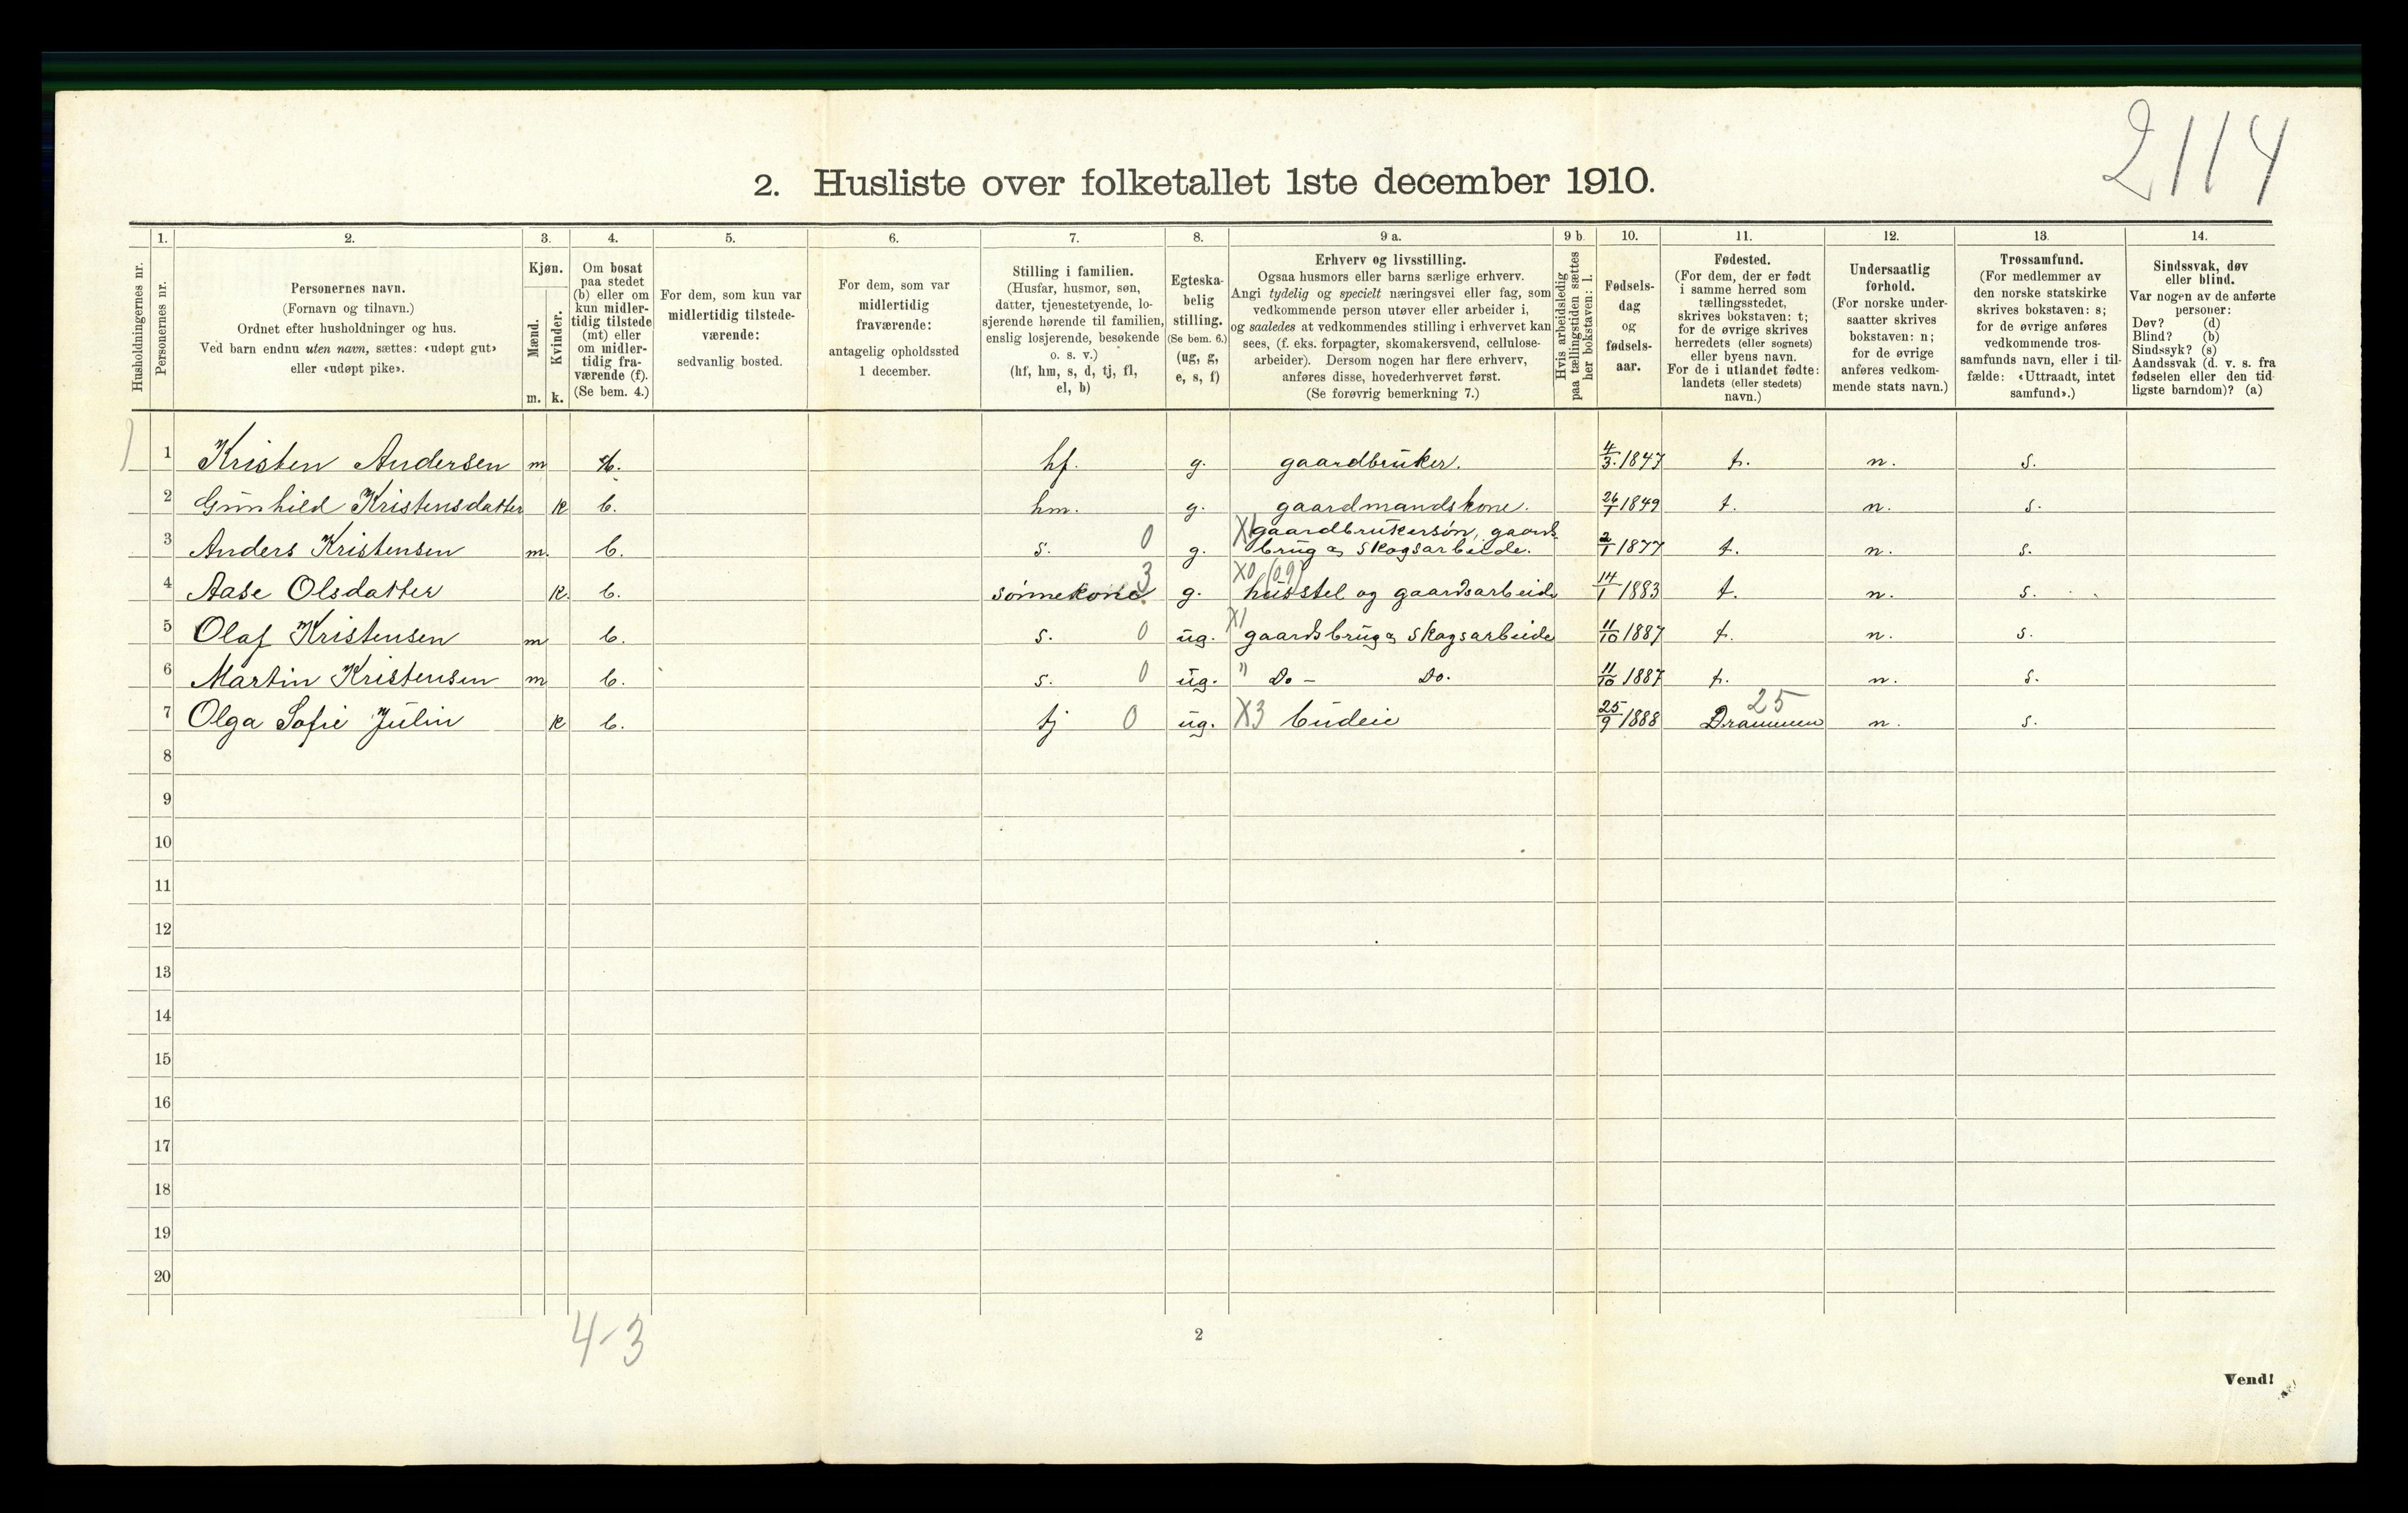 2114
2. Husliste over folketallet 1ste december 1910.
Husholdningernes nr.
1. Personernes nr.
2. Personernes navn.
(Fornavn og tilnavn.)
Ordnet efter husholdninger og hus.
Ved barn endnu uten navn, sættes: «udøpt gut»
eller «udøpt pike».
3. Kjøn.
Mænd. m.
Kvinder. k.
4. Om bosat
paa stedet
(b) eller om
kun midler-
tidig tilstede
(mt) eller
om midler-
tidig fra-
værende (f).
(Se bem. 4.)
5. For dem, som kun var
midlertidig tilstede-
værende:
sedvanlig bosted.
6. For dem, som var
midlertidig
fraværende:
antagelig opholdssted
1 december.
7. Stilling i familien.
(Husfar, husmor, søn,
datter, tjenestetyende, lo-
sjerende hørende til familien,
enslig losjerende, besøkende
o. s. v.)
(hf, hm, s, d, tj, fl,
el, b)
8. Egteska-
belig
stilling.
(Se bem. 6.)
(ug, g,
e, s, f)
9 a. Erhverv og livsstilling.
Ogsaa husmors eller barns særlige erhverv.
Angi tydelig og specielt næringsvei eller fag, som
vedkommende person utøver eller arbeider i,
og saaledes at vedkommendes stilling i erhvervet kan
sees, (f. eks. forpagter, skomakersvend, cellulose-
arbeider). Dersom nogen har flere erhverv,
anføres disse, hovederhvervet først.
(Se forøvrig bemerkning 7.)
9 b Hvis arbeidsledig
paa tællingstiden sættes
her bokstaven: l.
10. Fødsels-
dag
og
fødsels-
aar.
11. Fødested.
(For dem, der er født
i samme herred som
tællingsstedet,
skrives bokstaven: t;
for de øvrige skrives
herredets (eller sognets)
eller byens navn.
For de i utlandet fødte:
landets (eller stedets)
navn.)
12. Undersaatlig
forhold.
(For norske under-
saatter skrives
bokstaven: n;
for de øvrige
anføres vedkom-
mende stats navn.)
13. Trossamfund.
(For medlemmer av
den norske statskirke
skrives bokstaven: s;
for de øvrige anføres
vedkommende tros-
samfunds navn, eller i til-
fælde: «Uttraadt, intet
samfund».)
14. Sindssvak, døv
eller blind.
Var nogen av de anførte
personer:
Døv? (d)
Blind? (b)
Sindssyk? (s)
Aandssvak (d. v. s. fra
fødselen eller den tid-
ligste barndom)? (a)
1 Kristen Andersen m b. hf. g. gaardbruker. 4/3. 1847 t. n. s.
2 Gunhild Kristensdatter k b. hm. g. gaardmandskone. 1849 t. n. s.
3 Anders Kristensen m. b. s. 0 g. X1 gaardbrukersøn, gaards
brug og skogsarbeide. 2/1 1877 t. n. s.
4 Aase Olsdatter k. b. sønnekone 3 g. X0 (09) husstel og gaardsarbeide 14/1 1883 t. n. s.
5 Olaf Kristensen m b. s. 0 ug. X1 gaardsbrug og skogsarbeide 11/10 1887 t. n. s.
6 Martin Kristensen m b. s. 0 ug. " Do - Do. 11/10 1887 t. n. s.
7 Olga Sofie Julin k b. tj 0 ug. X3 budeie 25/9 1888 25 Drammen n. s.
8
9
10
11
12
13
14
15
16
17
18
19
20
4-3
2
Vend!